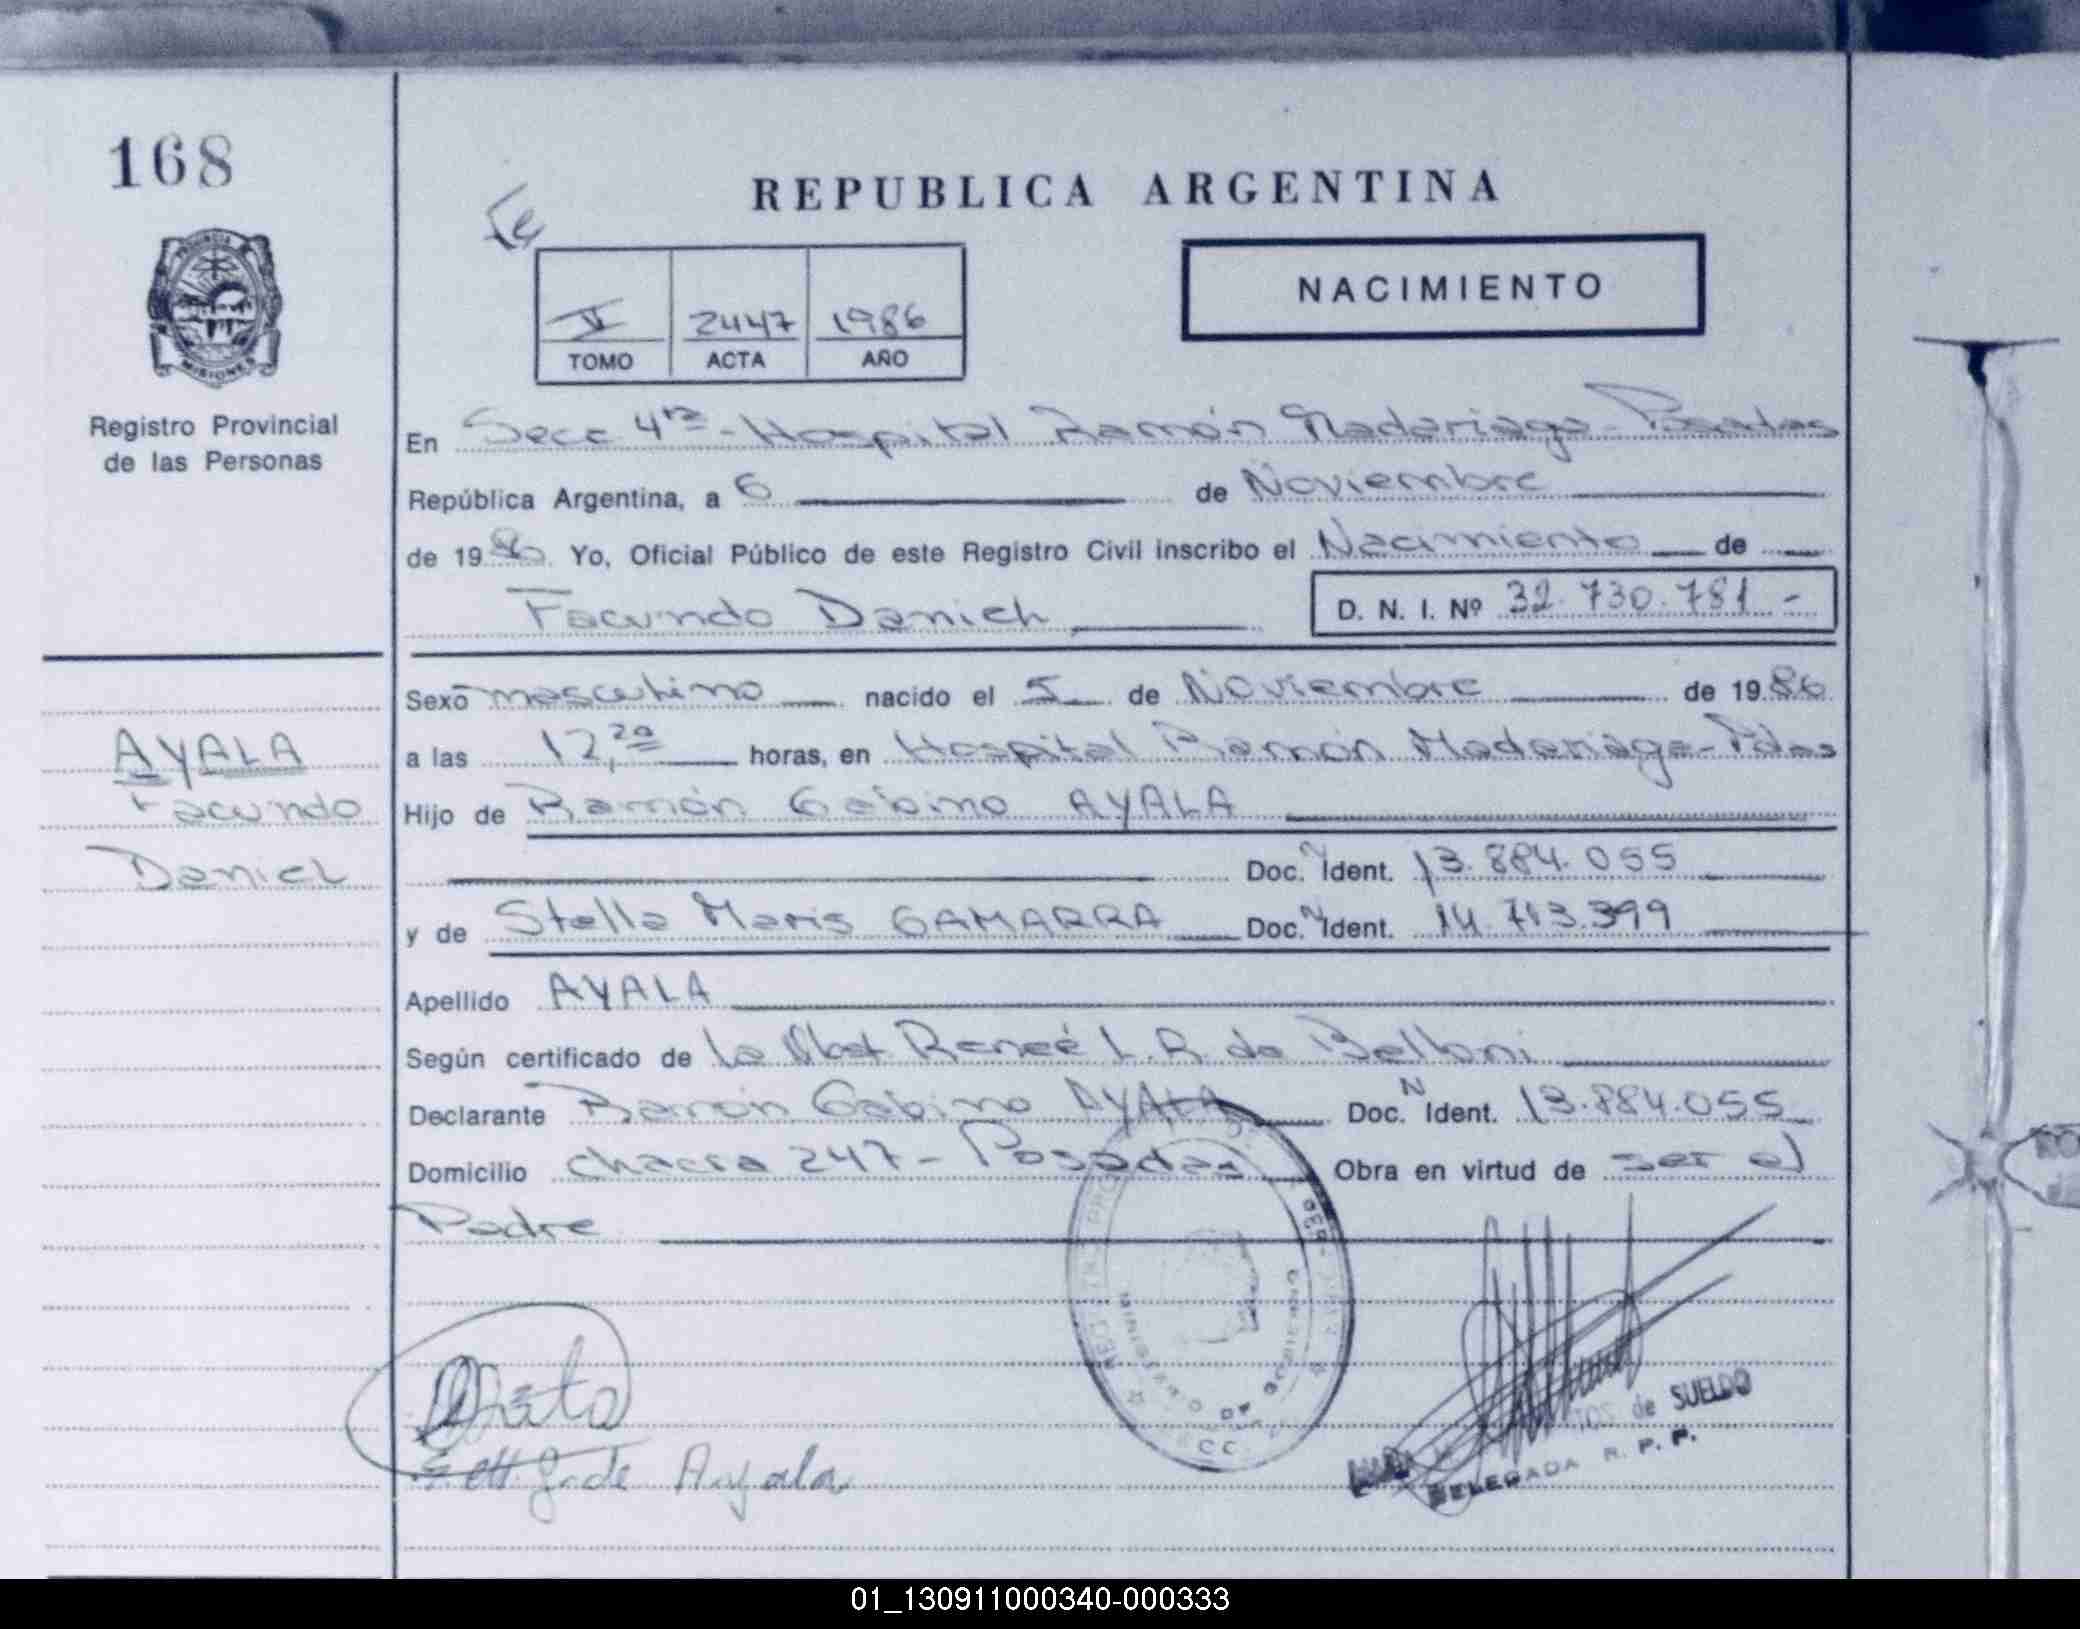 168
REPUBLICA ARGENTINA
PROVINCIA
MISIONES
NACIMIENTO
V 2447 1986
TOMO ACTA AÑO
Registro Provincial
de las Personas
En Secc 4ta - Hospital Ramón Madariaga - Posadas
República Argentina, a 6 de Noviembre
de 1986. Yo, Oficial Público de este Registro Civil inscribo el Nacimiento de
Facundo Daniel D. N. I. Nº 32.730.781 -
AYALA
Facundo
Daniel
Sexo masculino nacido el 5 de Noviembre de 1986
a las 12,20 horas, en Hospital Ramón Madariaga - Pdas
Hijo de Ramón Gabino AYALA
Doc. N Ident. 13.884.055
y de Stella Maris GAMARRA Doc. N Ident. 14.713.399
Apellido AYALA
Según certificado de la Obst Reneé L.R. de Belloni
Declarante Ramón Gabino AYALA Doc. N Ident. 13.884.055
Domicilio chacra 247 - Posadas Obra en virtud de ser el
Padre
MINISTERIO DE GOBIERNO
de SUELDO
DELEGADA R. P. P.
de Ayala
01_130911000340-000333